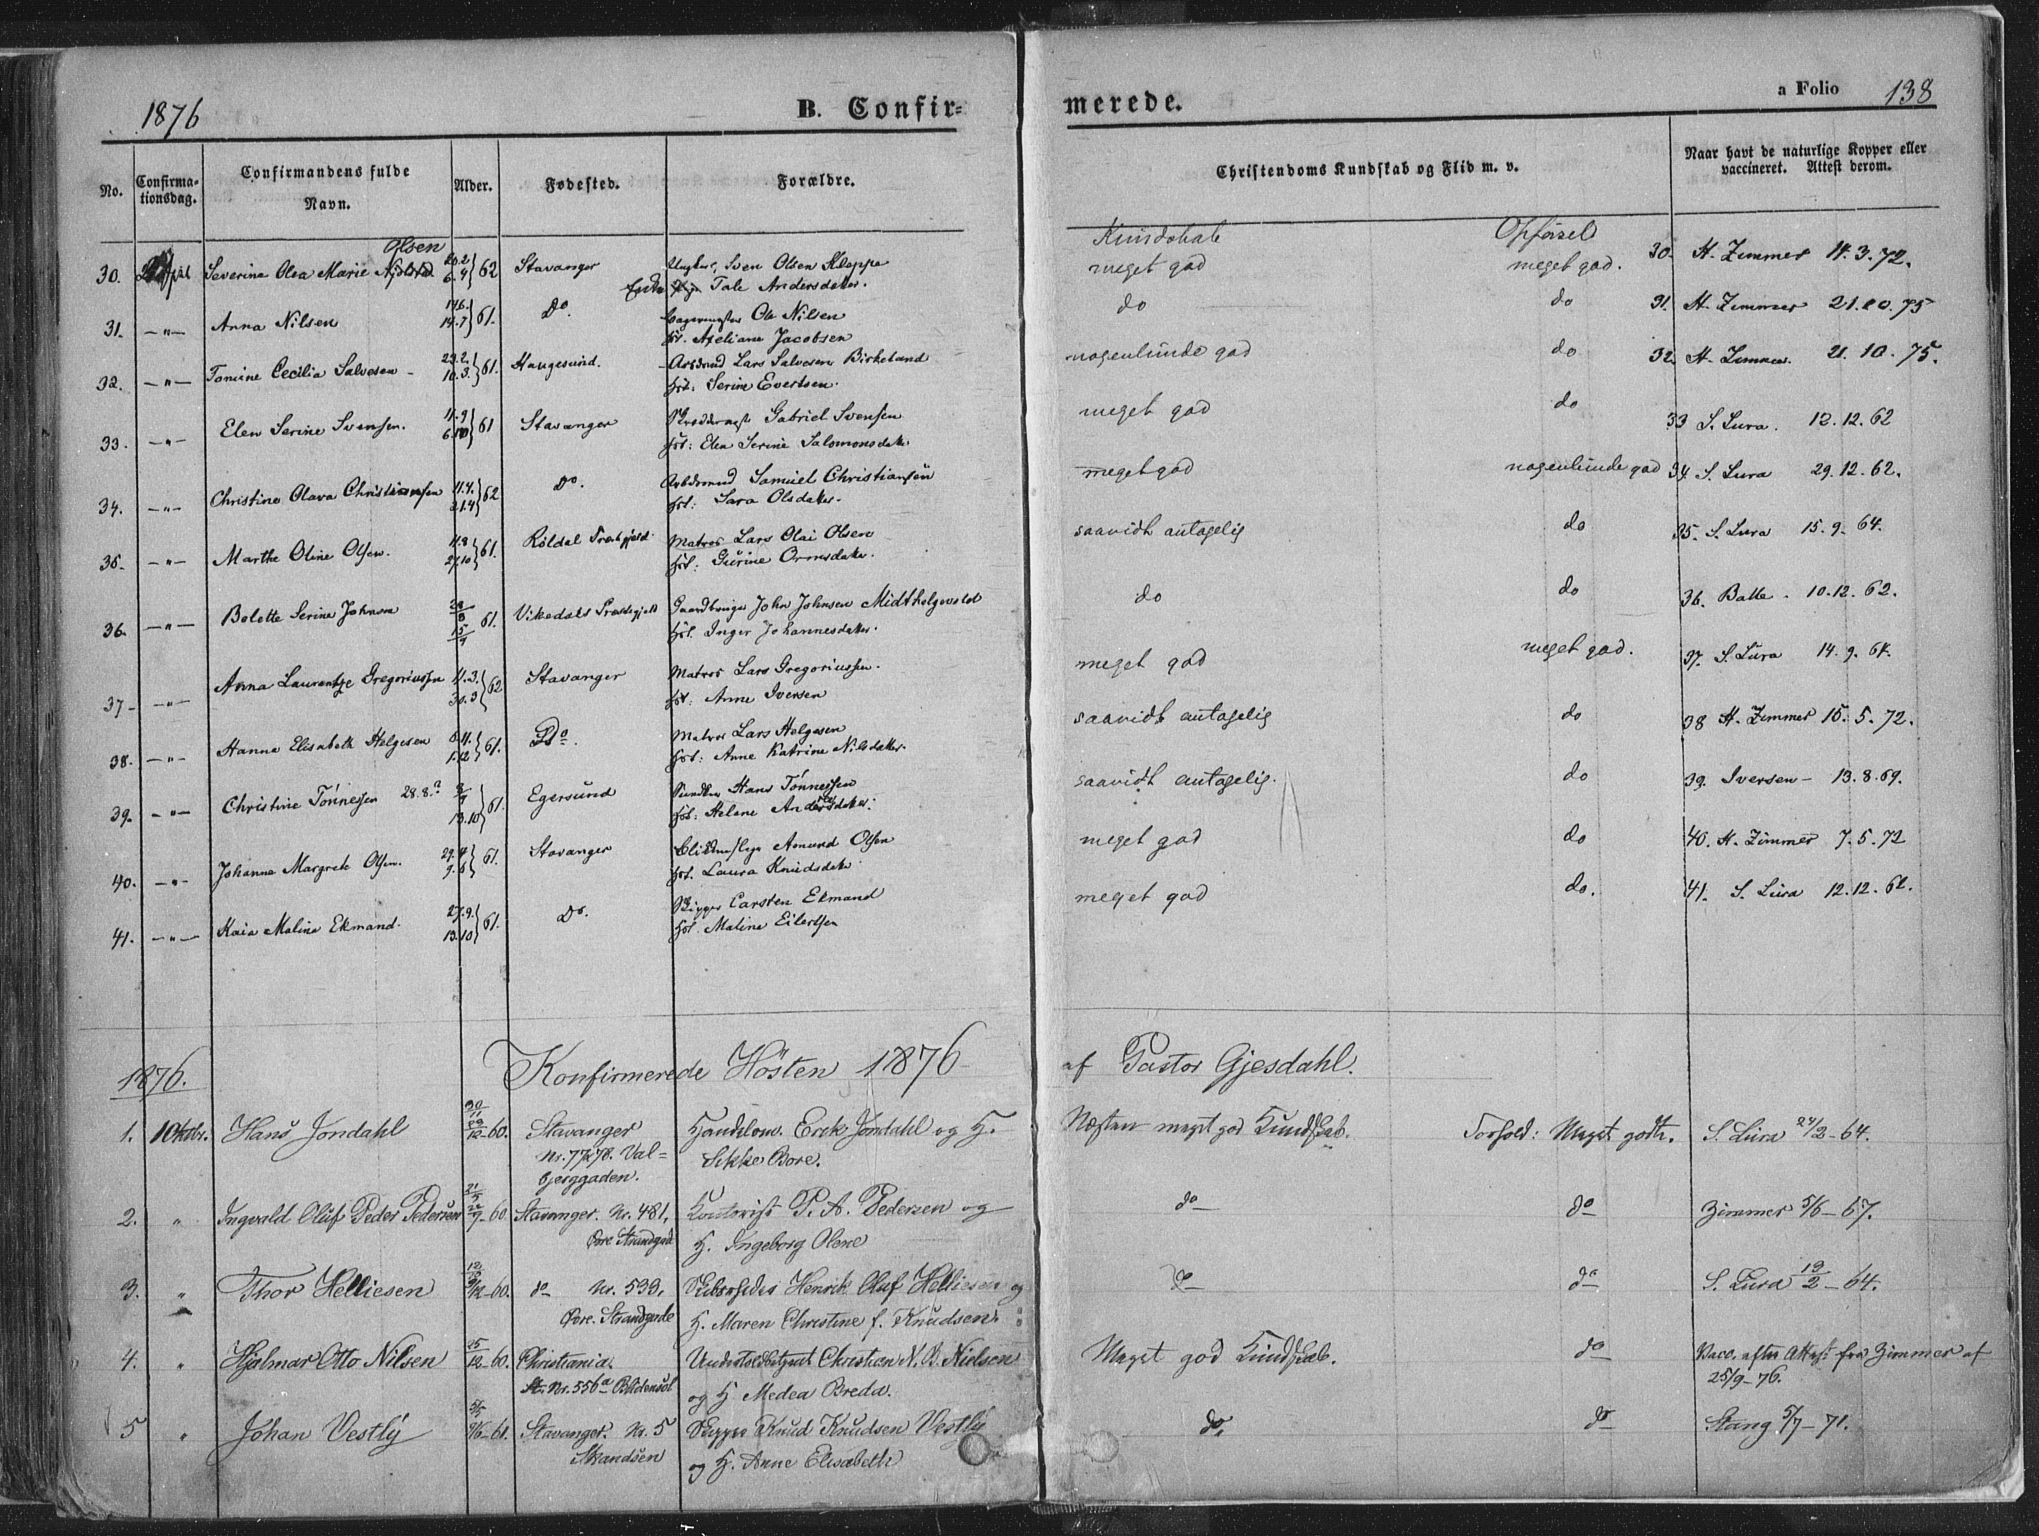 1876 B. Confirmerede. a Folio 138
No. Confirmationsdag. Confirmandens fulde Navn. Alder. Fødested. Forældre. Christendoms Kundskab og Flid m. v. Naar havt de naturlige Kopper eller vaccineret. Attest derom.
Kundskab Opførsel
Olsen
30. Severine Olea Marie 20.2 6.4 } 62 Stavanger Ungkar, Sven Olsen Kleppe meget god meget god. 30. H. Zimmer 14.3.72.
Enke Tale Andersdatter.
31. —"— Anna Nilsen 14.6. 14.7 } 61. Do. Ole Nilsen do do 31. H. Zimmer 21.10.75
Hst. Axeliane Jacobsen
32. —"— Tomine Cecilia Salvesen 23.2. 10.3. } 61. Haugesund. Arbdsmd Lars Salvesen Birkeland nogenlunde god do 32. H. Zimmer. 21.10.75.
Hst: Serine Evertsen.
33. —"— Elen Serine Svensen. 11.9 6.10 } 61 Stavanger Skrædermest Gabriel Svensen meget god do 33 S. Lura. 12.12.62
Hst: Elen Serine Salomonsdatter
34. —"— Christine Olava Christiansen 11.4. 21.4 } 62 Do. Arbdsmd Samuel Christiansen meget god nogenlunde god 34. S. Lura 29.12.62.
Hst: Sara Olsdatter.
35. —"— Marthe Oline Olsen. 11.8 27.10 } 61. Röldal Præstgjeld. Matros Lars Olai Olsen saavidt antagelig do 35. S. Lura 15.9.64.
Hst: Gurine Ormsdatter.
36. —"— Bolette Serine Johnsen 61. Vikedals Præstegjeld Gaardbruger John Johnsen Midthelgevold do do 36. Balle. 10.12.62.
Hst. Inger Johannesdatter.
37 —"— Anna Laurentze Gregoriussen 11.3. 30.3 } 62 Stavanger Matros Lars Gregoriussen. meget god meget god. 37. S. Lura 14.9.64.
Hst: Anne Iversen
38. —"— Hanna Elisabeth Helgesen 1.12 } 61. Do. Matros Lars Helgesen saavidt antagelig do 38 H. Zimmer 15.5.72.
Hst: Anne Katrine Nilsdatter.
39. —"— Christine Tönnessen 28.8. 13.10 } 61. Egersund Hans Tönnessen saavidt antagelig. do 39. Iversen — 13.8.69.
Hst: Helene Andersdatter.
40. —"— Johanne Margrete Olsen. 29.4 9.6 } 61. Stavanger Amund Olsen meget god do 40. H. Zimmer 7.5.72
Hst. Laura Knudsdatter
41. —"— Kaia Malina Ekmand. 27.9. 13.10 } 61. Do. Skipper Carsten Ekmand meget god do. 41. S. Lura 12.12.62.
Hst. Malina Eilertsen
1876. Konfirmerede Hösten 1876 af Pastor Gjesdahl.
1. 1 Oktbr. Hans Jondahl 30/11 29/12-60. Stavanger Handelsm. Erik Jondahl og H. Næsten meget god Kundskab. Forhold: Meget godt. S. Lura 24/2-64.
Nr. 77 & 78. Valbjerggaden. Sikke Bore.
2. " Ingvald Oluf Peder Pedersen 60 Stavanger. Nr. 481, P. A. Pedersen og do do Zimmer 5/6-67.
Øvre Strandgad H. Ingeborg Olene
3. " Thor Helliesen 60. do Nr. 533, Skibsrheder Henrik Oluf Helliesen og do do S. Lura 19/2-64.
Øvre. Strandgade H. Maren Christine f. Knudsen.
4. " Hjalmar Otto Nilsen 60. Christiania. Undertoldbetjent Christian N. B. Nielsen Meget god Kundskab. do Vacc. efter Attest fra Zimmer af
St. Nr. 556a og H Medea Breda. 25/9-76.
5 " Johan Vestly 61. Stavanger. Nr. 5 Skipper Knud Knudsen Vestly do. do Stang 5/7-71.
Strandsen og H. Anne Elisabeth